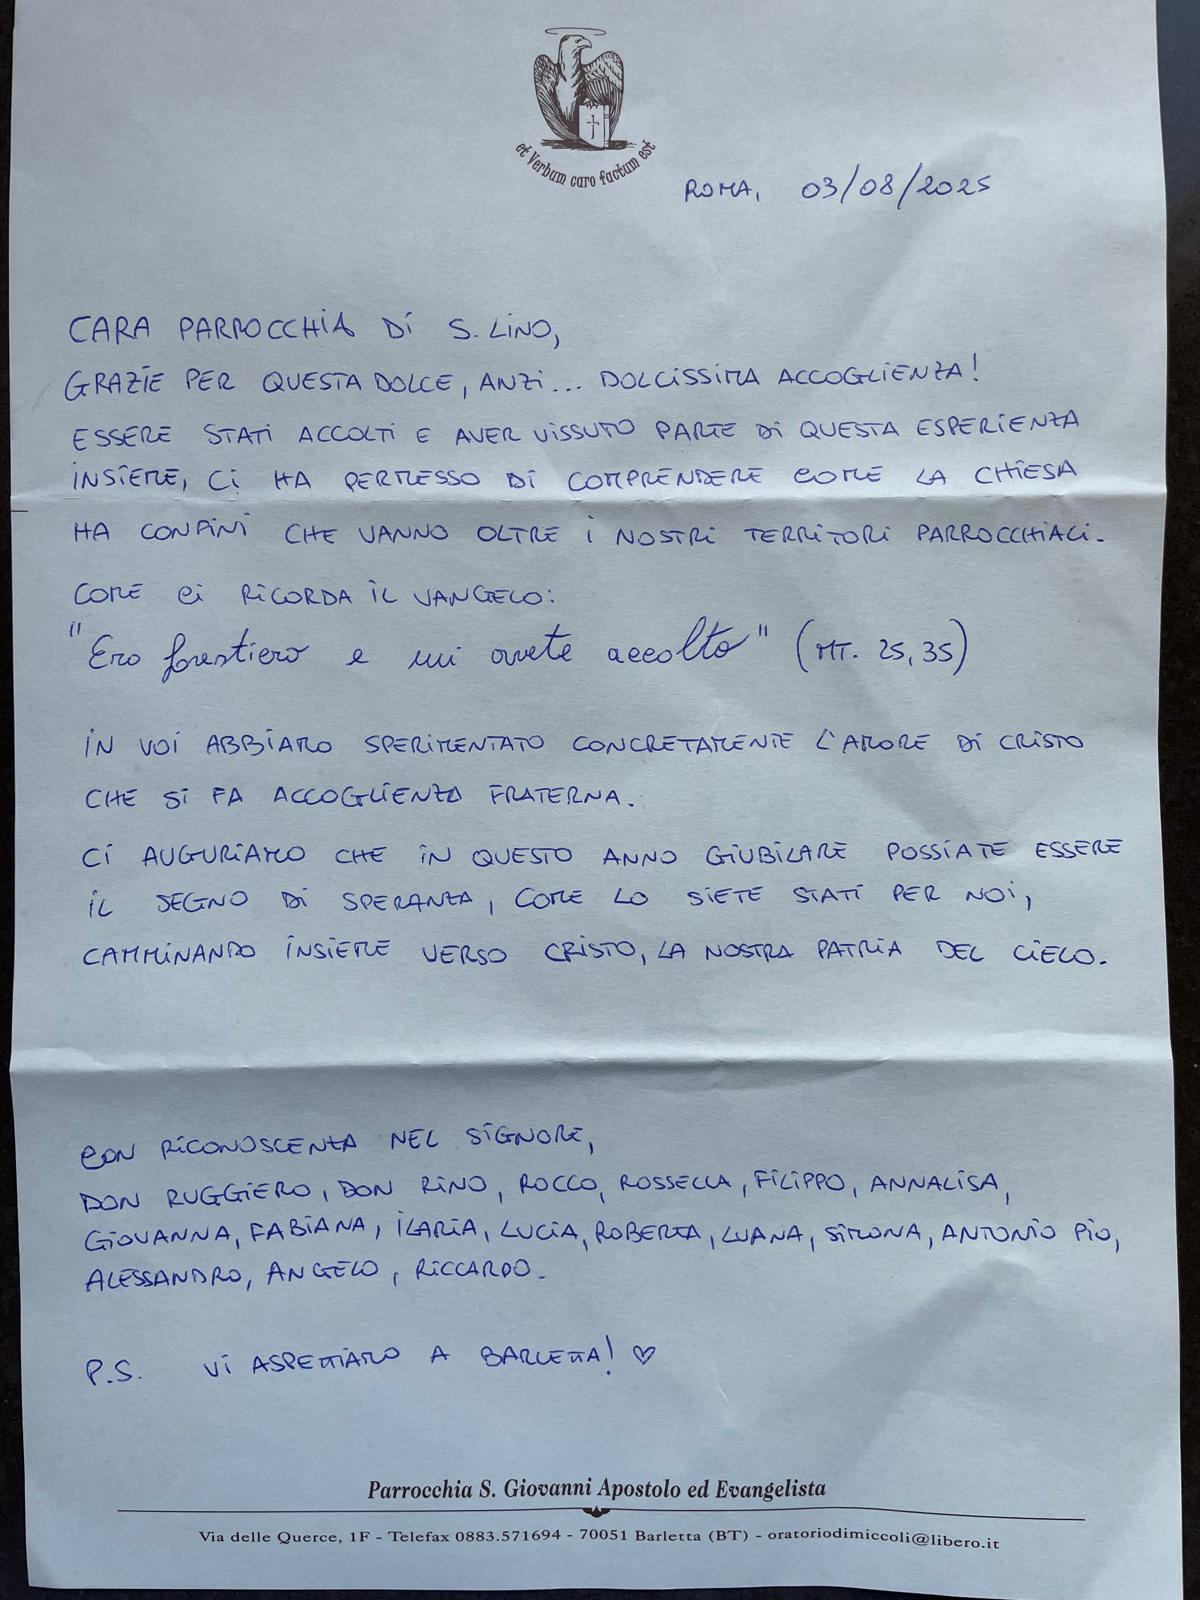 et Verbum caro factum est
ROMA, 03/08/2025
CARA PARROCCHIA DI S. LINO,
GRAZIE PER QUESTA DOLCE, ANZI... DOLCISSIMA ACCOGLIENZA!
ESSERE STATI ACCOLTI E AVER VISSUTO PARTE DI QUESTA ESPERIENZA
INSIEME, CI HA PERMESSO DI COMPRENDERE COME LA CHIESA
HA CONFINI CHE VANNO OLTRE I NOSTRI TERRITORI PARROCCHIALI.
COME CI RICORDA IL VANGELO:
"Ero forestiero e mi avete accolto" (MT. 25, 35)
IN VOI ABBIAMO SPERIMENTATO CONCRETAMENTE L'AMORE DI CRISTO
CHE SI FA ACCOGLIENZA FRATERNA.
CI AUGURIAMO CHE IN QUESTO ANNO GIUBILARE POSSIATE ESSERE
IL SEGNO DI SPERANZA, COME LO SIETE STATI PER NOI,
CAMMINANDO INSIEME VERSO CRISTO, LA NOSTRA PATRIA DEL CIELO.
CON RICONOSCENZA NEL SIGNORE,
DON RUGGIERO, DON RINO, ROCCO, ROSSELLA, FILIPPO, ANNALISA,
GIOVANNA, FABIANA, ILARIA, LUCIA, ROBERTA, LUANA, SIMONA, ANTONIO PIO,
ALESSANDRO, ANGELO, RICCARDO.
P.S. VI ASPETTIAMO A BARLETTA! ♡
Parrocchia S. Giovanni Apostolo ed Evangelista
Via delle Querce, 1F - Telefax 0883.571694 - 70051 Barletta (BT) - oratoriodimiccoli@libero.it